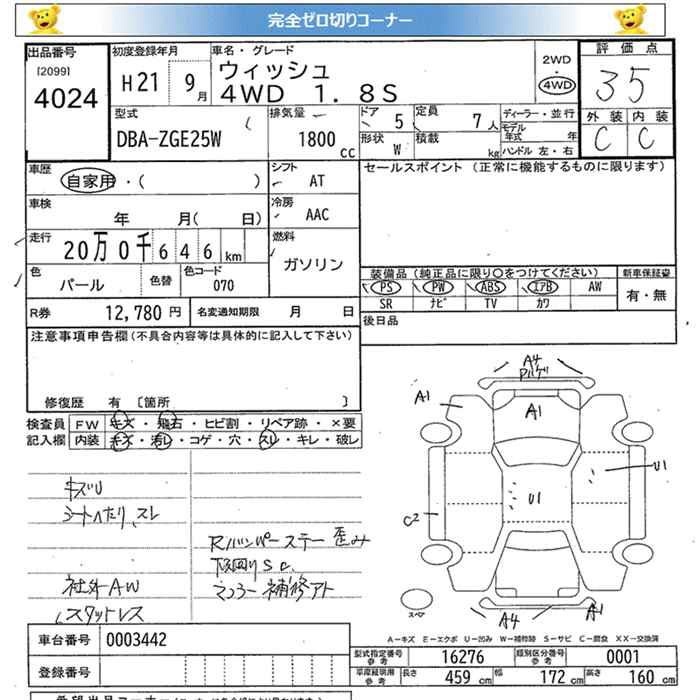 完全ゼロ切りコーナー
出品番号
[2099]
4024
初度登録年月
H21 9月
車名・グレード
ウィッシュ
4WD 1.8S
2WD
4WD
評価点
3.5
外装 内装
C C
型式
DBA-ZGE25W
排気量
1800 cc
ドア 5
形状 W
定員 7人
積載 kg
ディーラー・並行
モデル年式 年
ハンドル 左・右
車歴
自家用・( )
シフト
AT
セールスポイント (正常に機能するものに限ります)
車検
年 月( 日)
冷房
AAC
走行
20万0千646km
燃料
ガソリン
色
パール
色替
色コード
070
装備品(純正品に限り○をつけてください)
新車保証書
PS PW ABS エアB AW
SR ナビ TV カワ
有・無
R券 12,780円
名変通知期限 月 日
後日品
注意事項申告欄(不具合内容等は具体的に記入して下さい)
修復歴 有 〔箇所 〕
検査員記入欄
FW キズ・飛石・ヒビ割・リペア跡・×要
内装 キズ・汚レ・コゲ・穴・スレ・キレ・破レ
キズU
シートヘたり、スレ
Rバンパーステー歪み
下回りSC.
マフラー補修アト
社外AW
スタットレス
A4
A1
A1
U1
U1
C2
スペア
A4
A1
A-キズ E-エクボ U-凹み W-補修跡 S-サビ C-腐食 XX-交換済
車台番号 0003442
登録番号
型式指定番号 参考 16276
類別区分番号 参考 0001
車庫証明用 参考 長さ 459 cm 幅 172 cm 高さ 160 cm